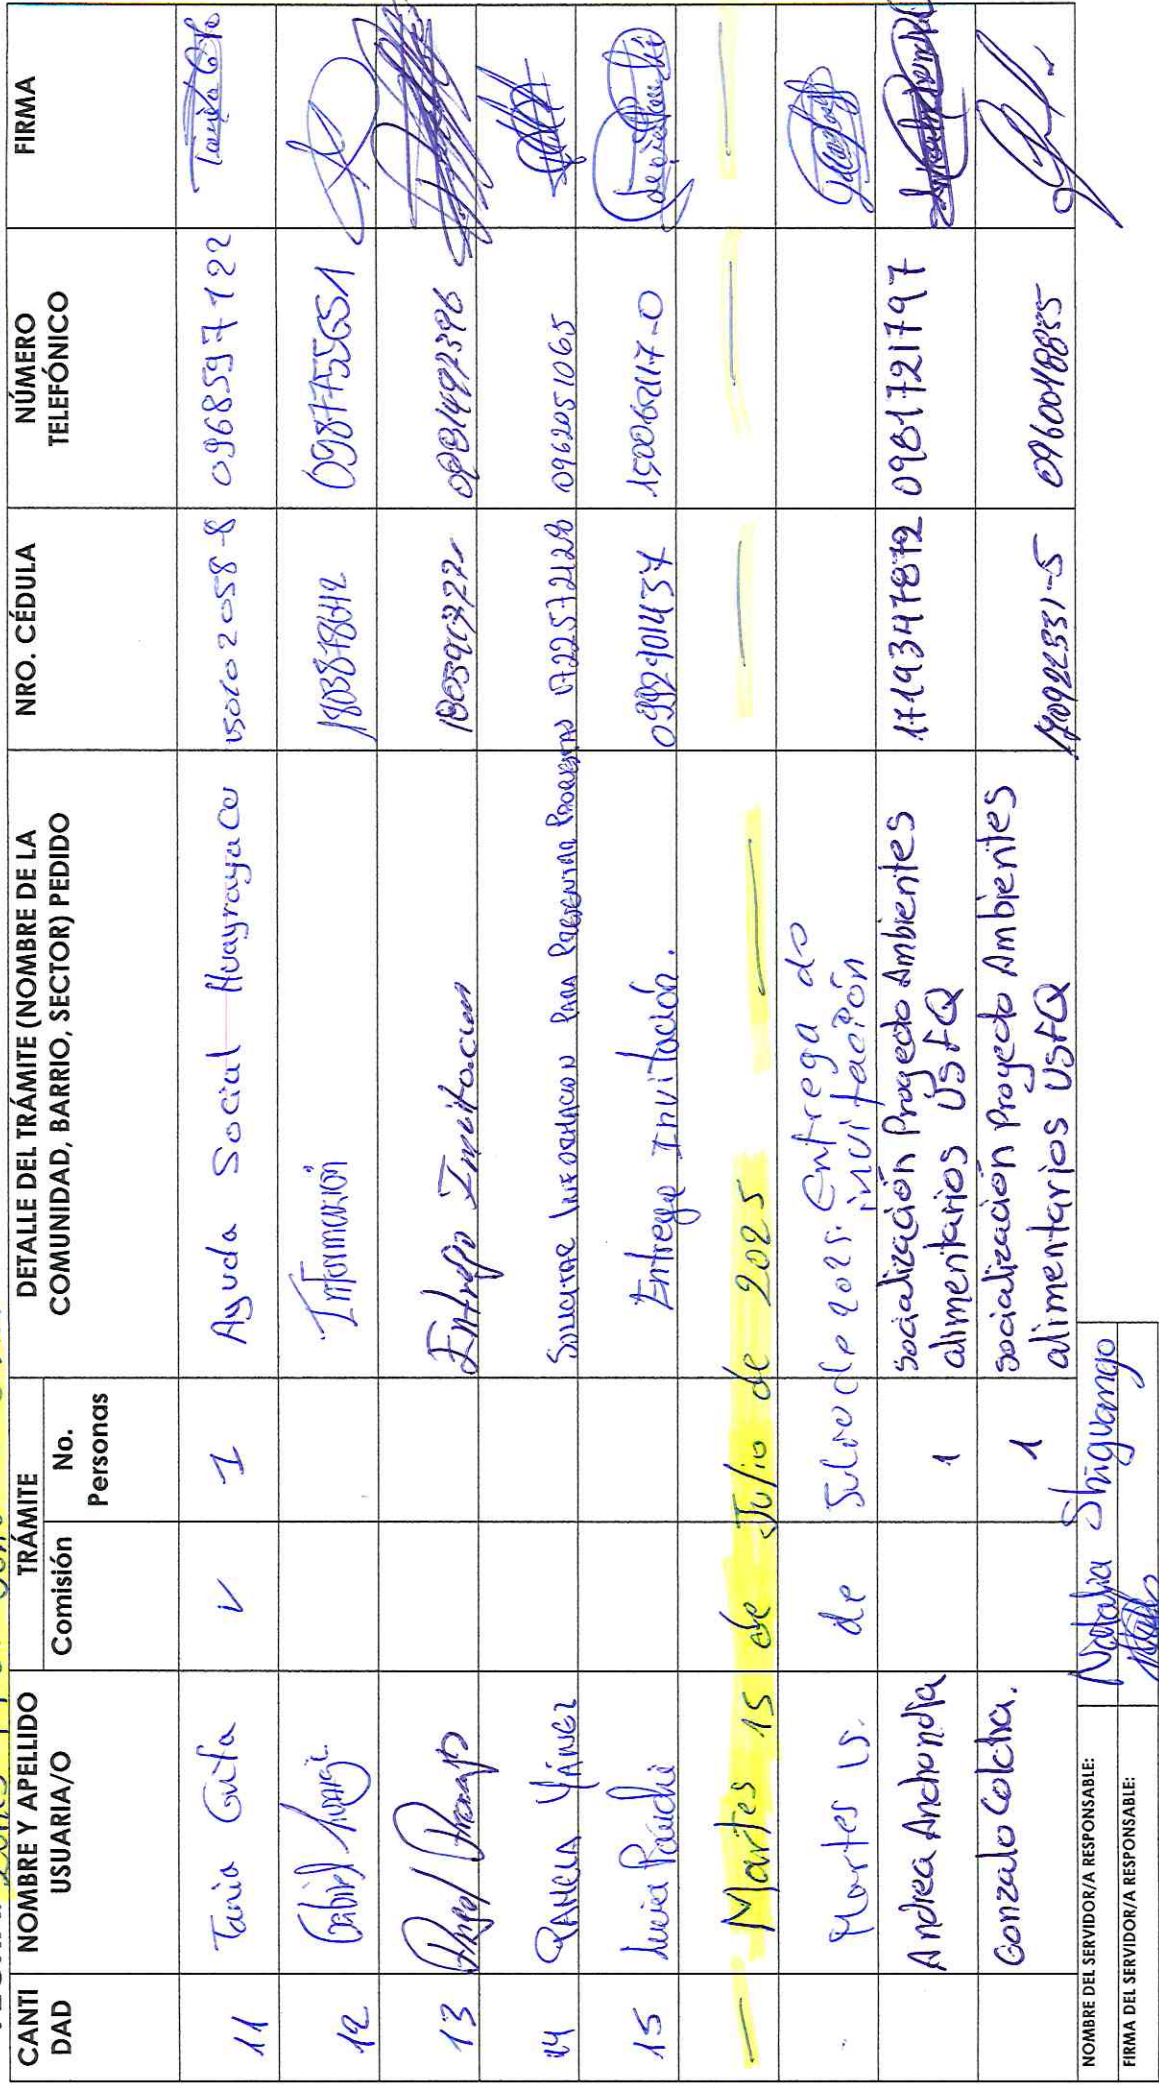 CANTI DAD NOMBRE Y APELLIDO USUARIA/O TRÁMITE Comisión No. Personas DETALLE DEL TRÁMITE (NOMBRE DE LA COMUNIDAD, BARRIO, SECTOR) PEDIDO NRO. CÉDULA NÚMERO TELEFÓNICO FIRMA
11 Tania Grefa ✓ 1 Ayuda Social Huayrayacu 150102058-8 0968597122
12 Gabriel Información 1803878642 0987755651
13 Entrega Invitacion
14 PAMELA YÁNEZ SOLICITAR INFORMACION PARA PRESENTAR 1722572128 0962051065
15 Entrega Invitación. 0992401437 150062117-0
— Martes 15 de Julio de 2025 — — — —
Martes 15. de Julio de 2025. Entrega de invitación
Andrea Anchundia 1 Socialización Proyecto Ambientes alimentarios USFQ 1719347872 0981721797
Gonzalo Colcha. 1 Socialización Proyecto Ambientes alimentarios USFQ 0960048855
NOMBRE DEL SERVIDOR/A RESPONSABLE: Natalia Shiguango
FIRMA DEL SERVIDOR/A RESPONSABLE: